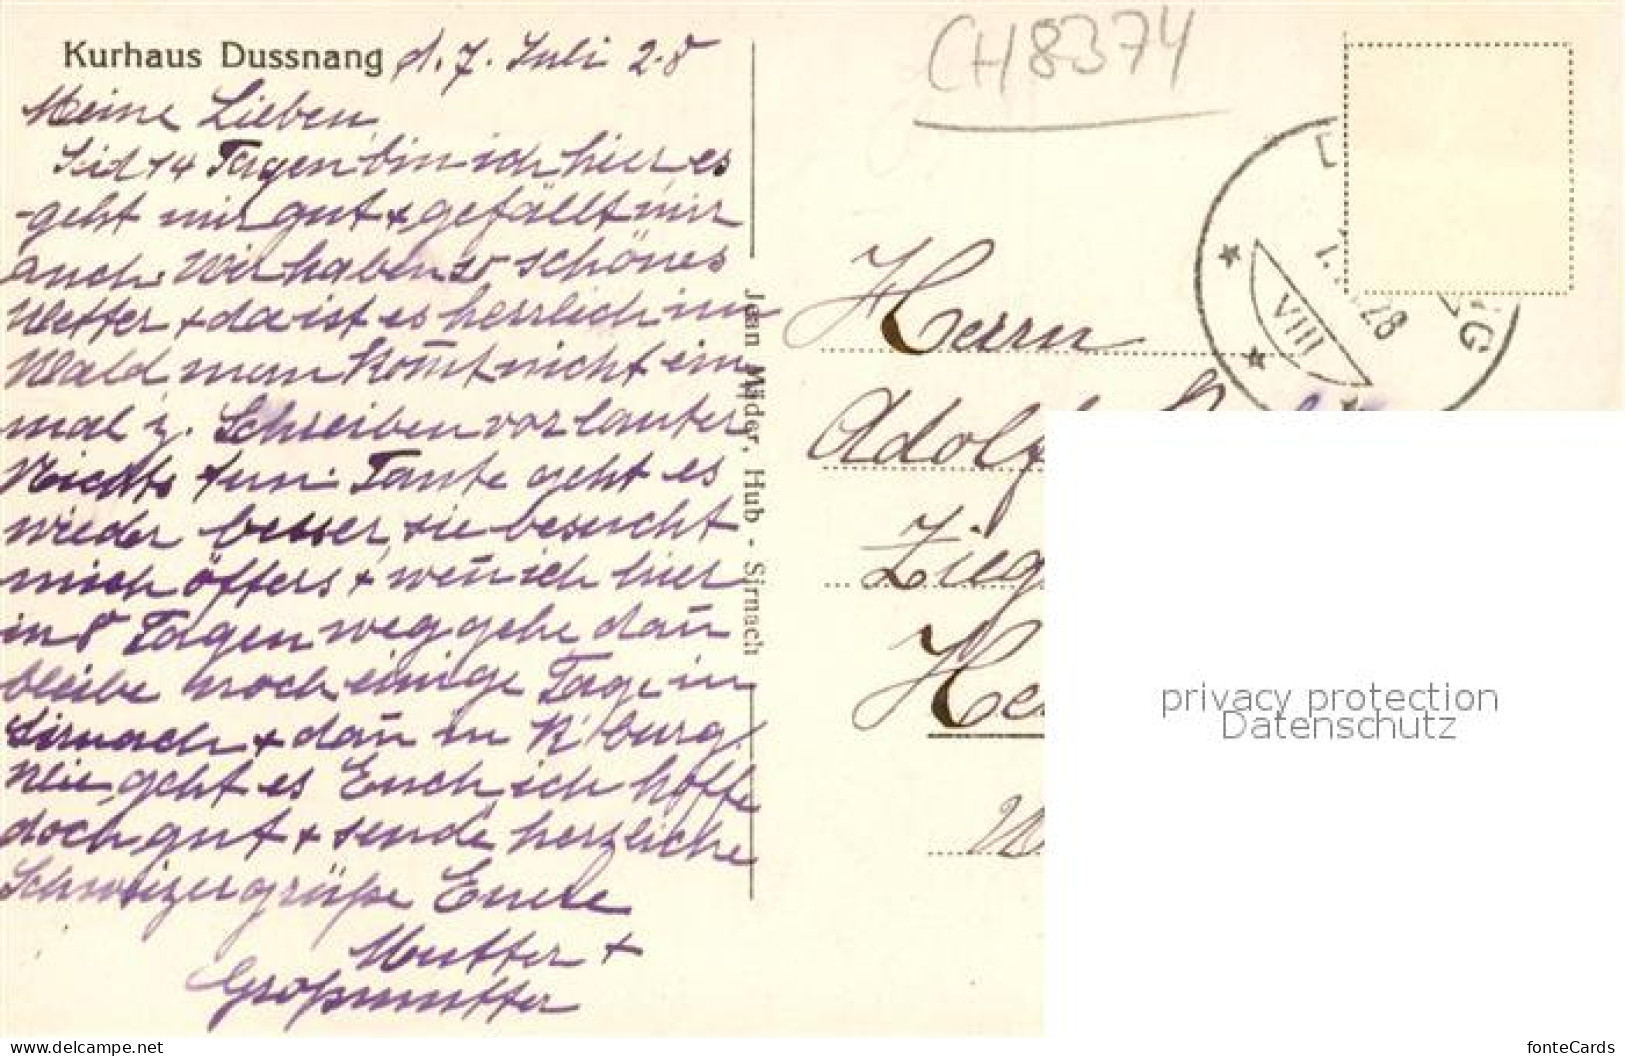 Kurhaus Dussnang d. 7. Juli 28
Meine Lieben,
Seid 14 Tagen bin ich hier es
geht mir gut + gefällt mir
auch. Wir haben so schönes
Wetter + da ist es herrlich im
Wald man kom̄t nicht ein
mal z. Schreiben vor lauter
Nichts tun. Tante geht es
wieder besser, sie besucht
mich öffters + wen̄ ich hier
in 8 Tagen weggehe dan̄
bleibe noch einige Tage in
Sirnach + dan̄ in K'burg.
Wie geht es Euch ich hoffe
doch gut + sende herzliche
Schweizergrüße Euere
Mutter +
Großmutter
Jean Mäder, Hub - Sirnach
CH8374
VIII 28
NG
Herrn
Adolf
Zieg
He
privacy protection
Datenschutz
www.delcampe.net
fonteCards